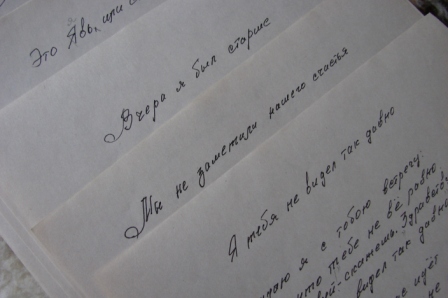 Это Явь, или
Вчера я был старше
Мы не заметили нашего счастья
А тебя не видел так давно
я с тобою встречу
что тебе не всё равно
видел так давно
идёт
не